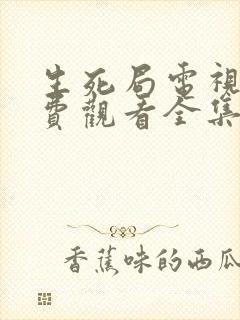 生死局電視
費觀看全集
香蕉味的西瓜